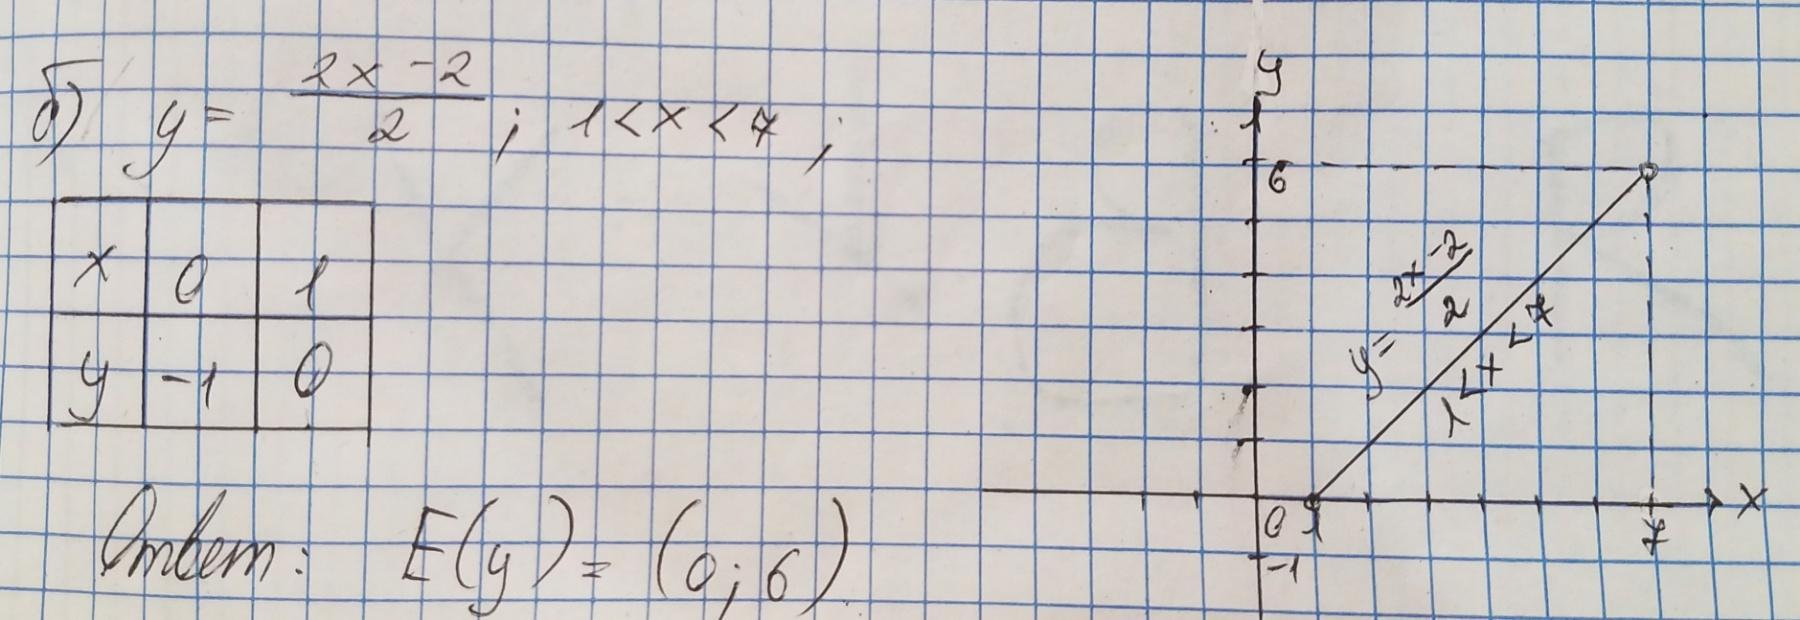 б) y = (2x - 2)/2 ; 1 < x < 7 ;
x 0 1
y -1 0
Ответ: E(y) = (0; 6)
y
1
6
y = (2x - 2)/2
1 < x < 7
0 1 7 x
-1